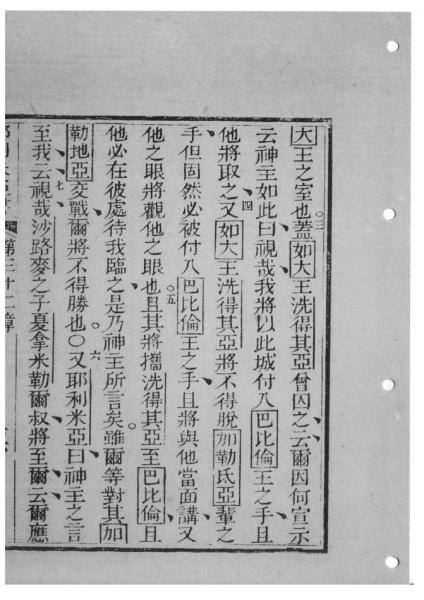 大王之室也三蓋如大王洗得其亞曾囚之云爾因何宣示
云神主如此曰視哉我將以此城付入巴比倫王之手且
他將取之四又如大王洗得其亞將不得脫加勒氏亞輩之
手但固然必被付入巴比倫王之手且將與他當面講又
他之眼將觀他之眼也五且其將攜洗得其亞至巴比倫且
他必在彼處待我臨之是乃神主所言矣雖爾等對其加
勒地亞交戰爾將不得勝也○六又耶利米亞曰神主之言
至我云七視哉沙路麥之子夏拿米勒爾叔將至爾云爾應
第三十二章